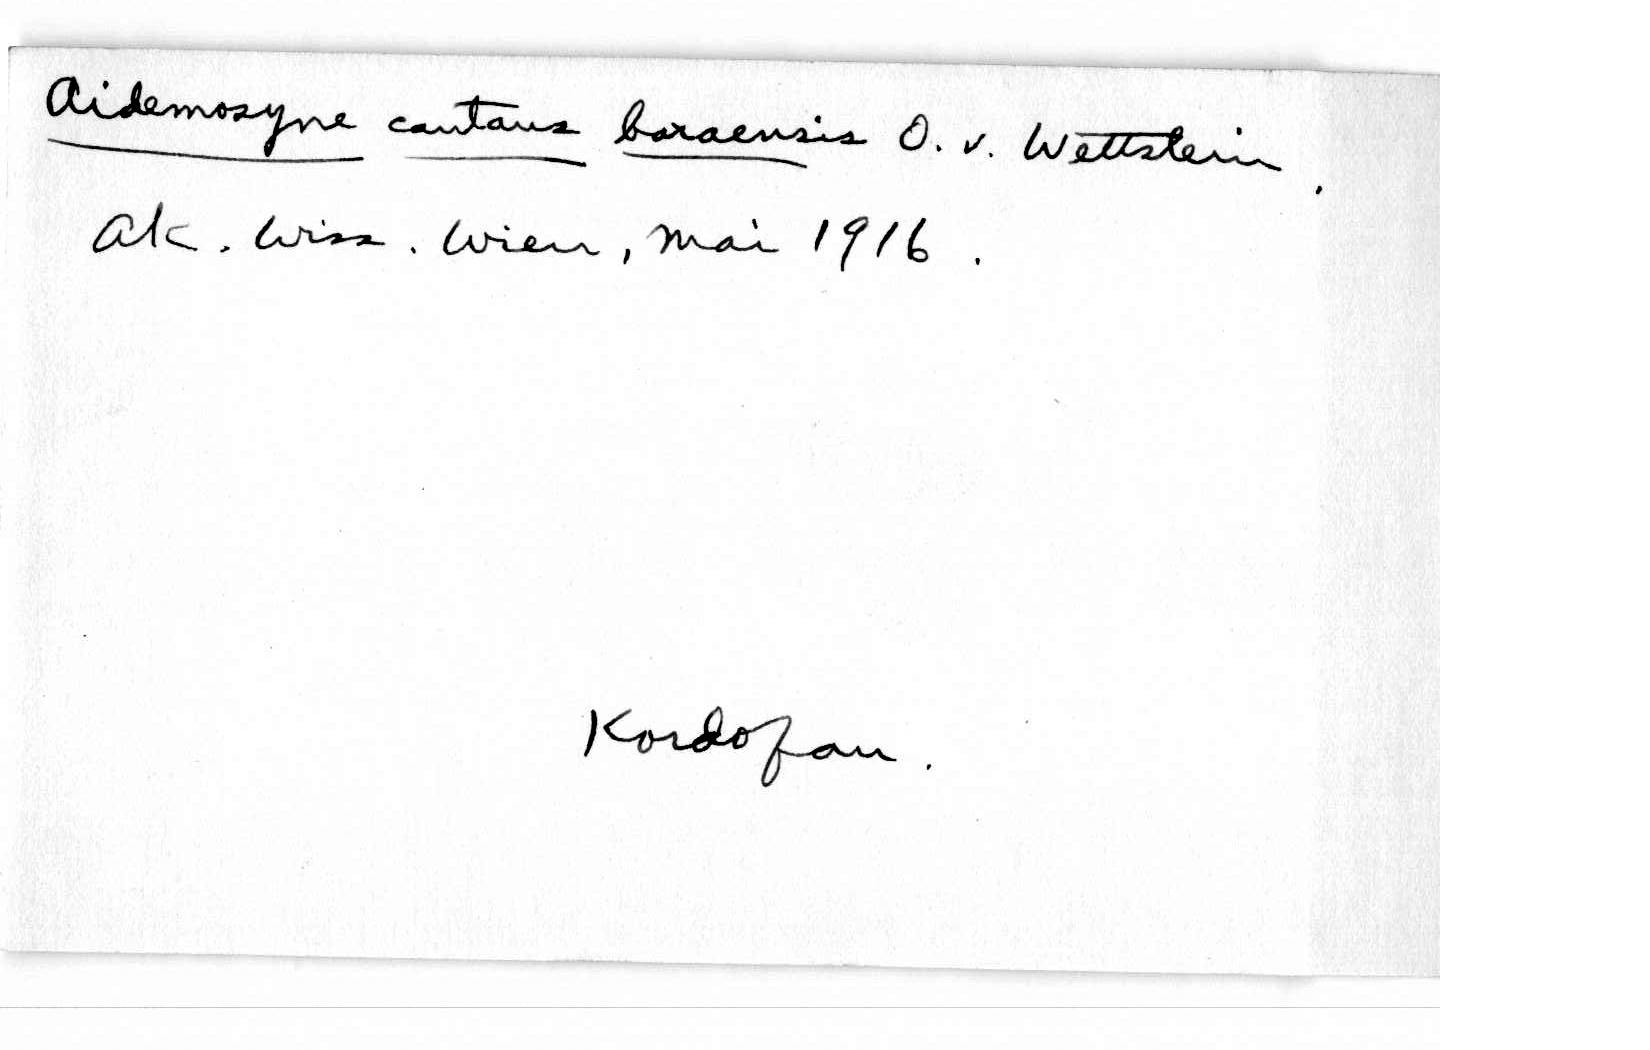 Aidemosyne cantans baraensis O. v. Wettstein.
Ak. Wiss. Wien, Mai 1916.
Kordofan.